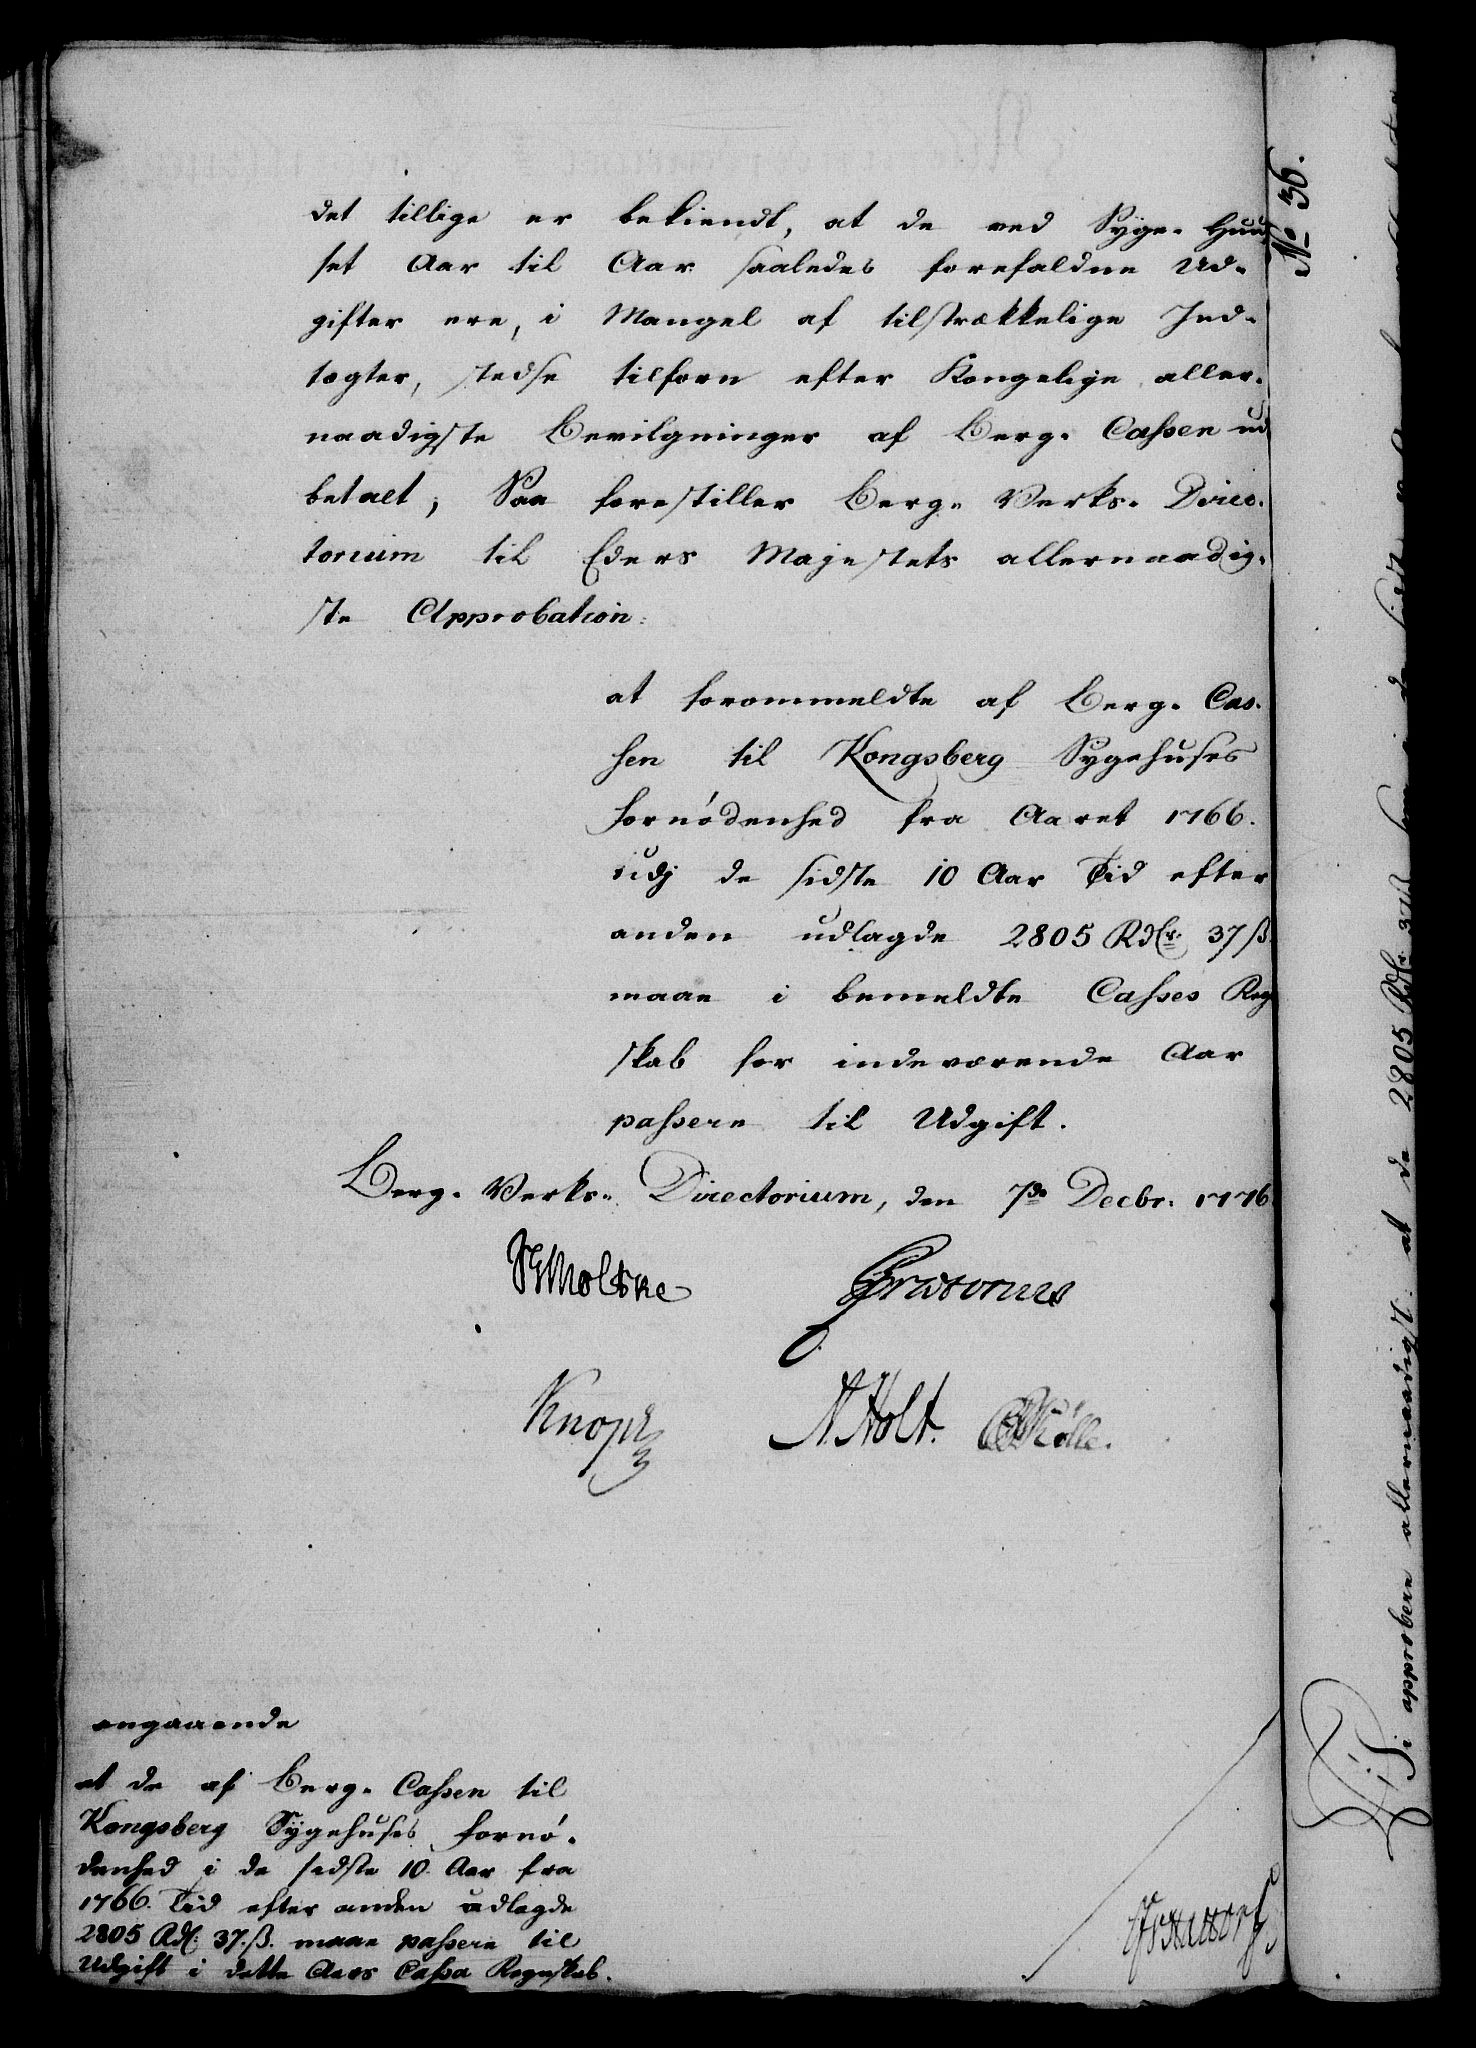 det tillige er bekiendt, at de ved Syge- Huu
set Aar til Aar saaledes forefaldne Ud-
gifter ere, i Mangel af tilstrækkelige Ind-
tægter, stedse tilforn efter Kongelige aller-
naadigste Bevilgninger af Berg- Cassen ud
betalt; Saa forestiller Berg- Verks- Direc-
torium til Eders Majestets allernaadig-
ste Approbation:
at forommeldte af Berg- Cas-
sen til Kongsberg Sygehuses
fornødenhed fra Aaret 1766.
udj de sidste 10 Aar Tid efter
anden udlagde 2805 Rdlr. 37 ß.
maae i bemeldte Casses Reg
skab for indeværende Aar
passere til Udgift.
Berg- Verks- Directorium, den 7de Decbr. 1776
Moltske
Knoph
N. Holt.
angaaende
at de af Berg- Cassen til
Kongsberg Sygehuses fornø-
denhed i de sidste 10 Aar fra
1766. Tid efter anden udlagde
2805 Rdl. 37. ß. maae passere til
Udgift i dette Aars Cassa Regnskab.
No 36.
Vi approbere allernaadigst: at de 2805 Rdlr. 37 ß som i de sidst